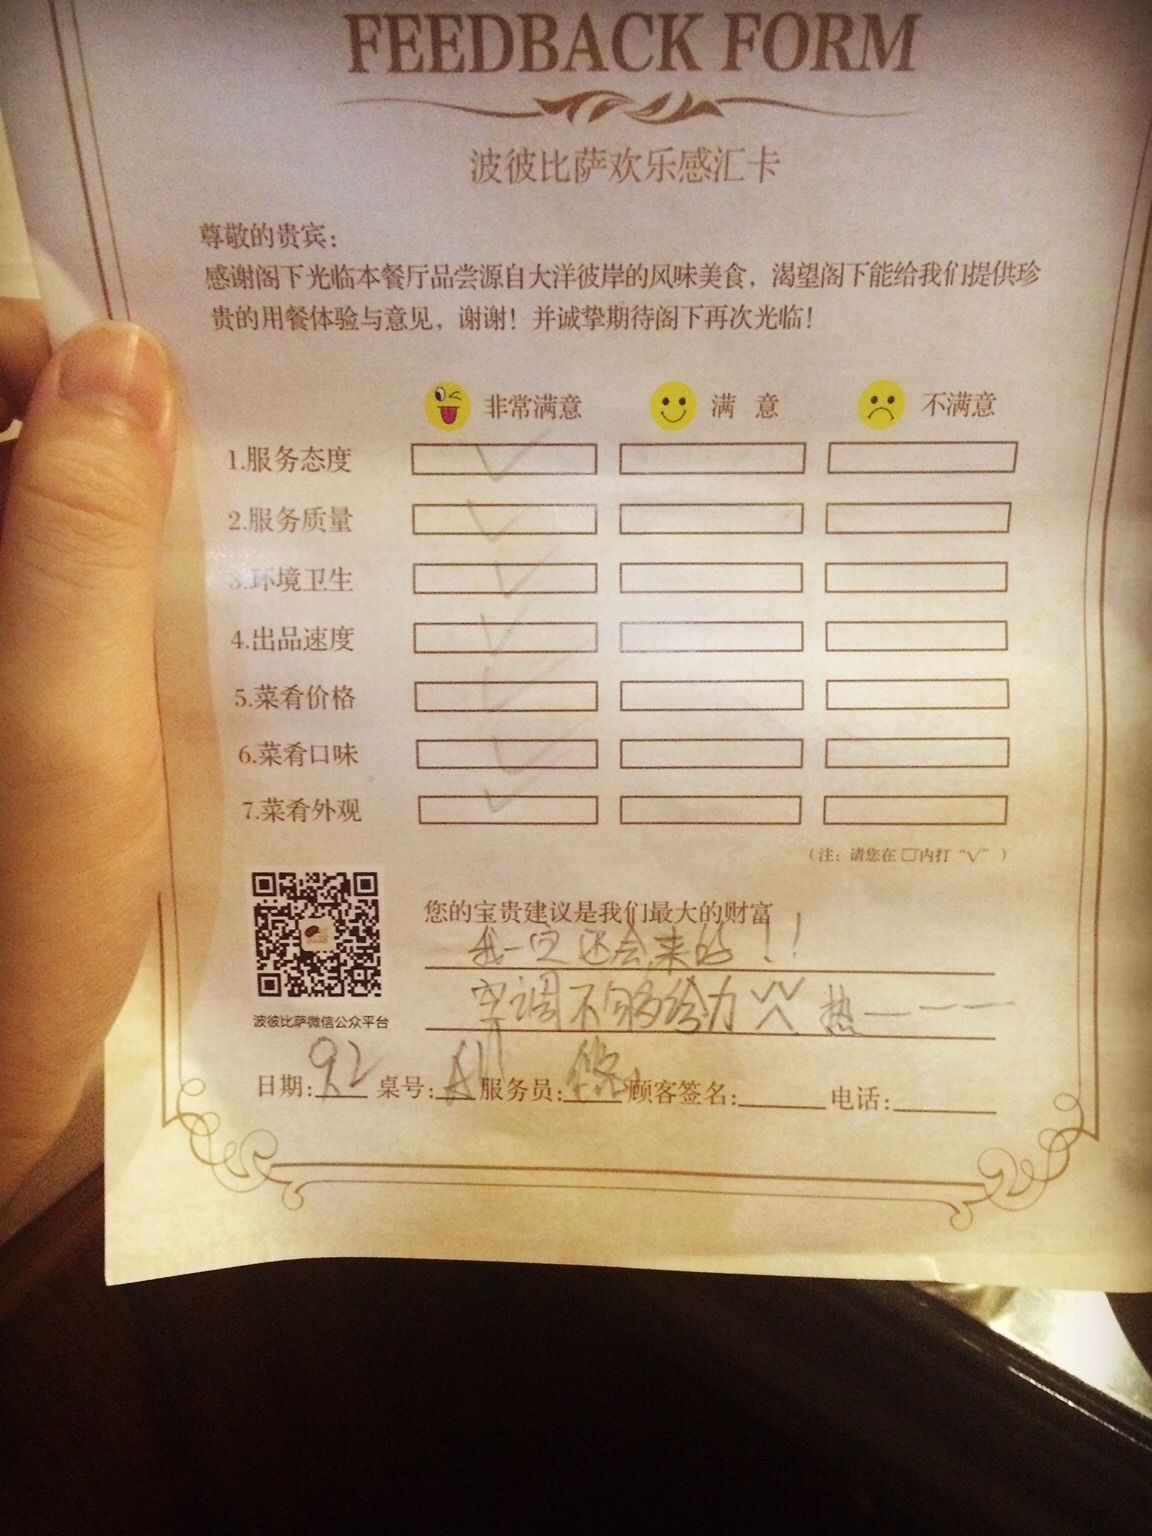 FEEDBACK FORM
波彼比萨欢乐感汇卡
尊敬的贵宾：
感谢阁下光临本餐厅品尝源自大洋彼岸的风味美食，渴望阁下能给我们提供珍
贵的用餐体验与意见，谢谢！并诚挚期待阁下再次光临！
非常满意 满 意 不满意
1.服务态度
2.服务质量
3.环境卫生
4.出品速度
5.菜肴价格
6.菜肴口味
7.菜肴外观
（注：请您在□内打“√”）
您的宝贵建议是我们最大的财富
我一定还会来的！！
空调不够给力 热一一一
波彼比萨微信公众平台
日期：9.2 桌号： 服务员： 顾客签名： 电话：